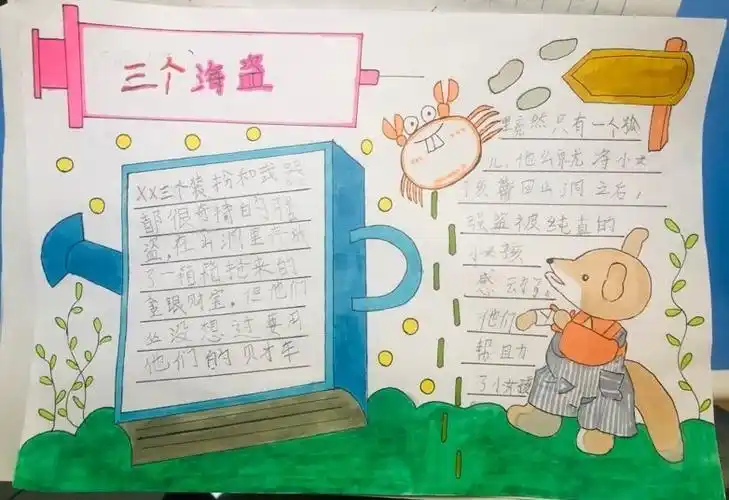 三个海盗
XX三个装扮和武器
都很奇怪的强
盗,在山洞里
了一箱箱抢来的
金银财宝,但他们
从没想过要用
他们的财
然只有一个孤
儿,他们 将小女
孩带回山洞之后,
强盗被纯真的
小女孩
感动了。
他们
帮
了小女孩